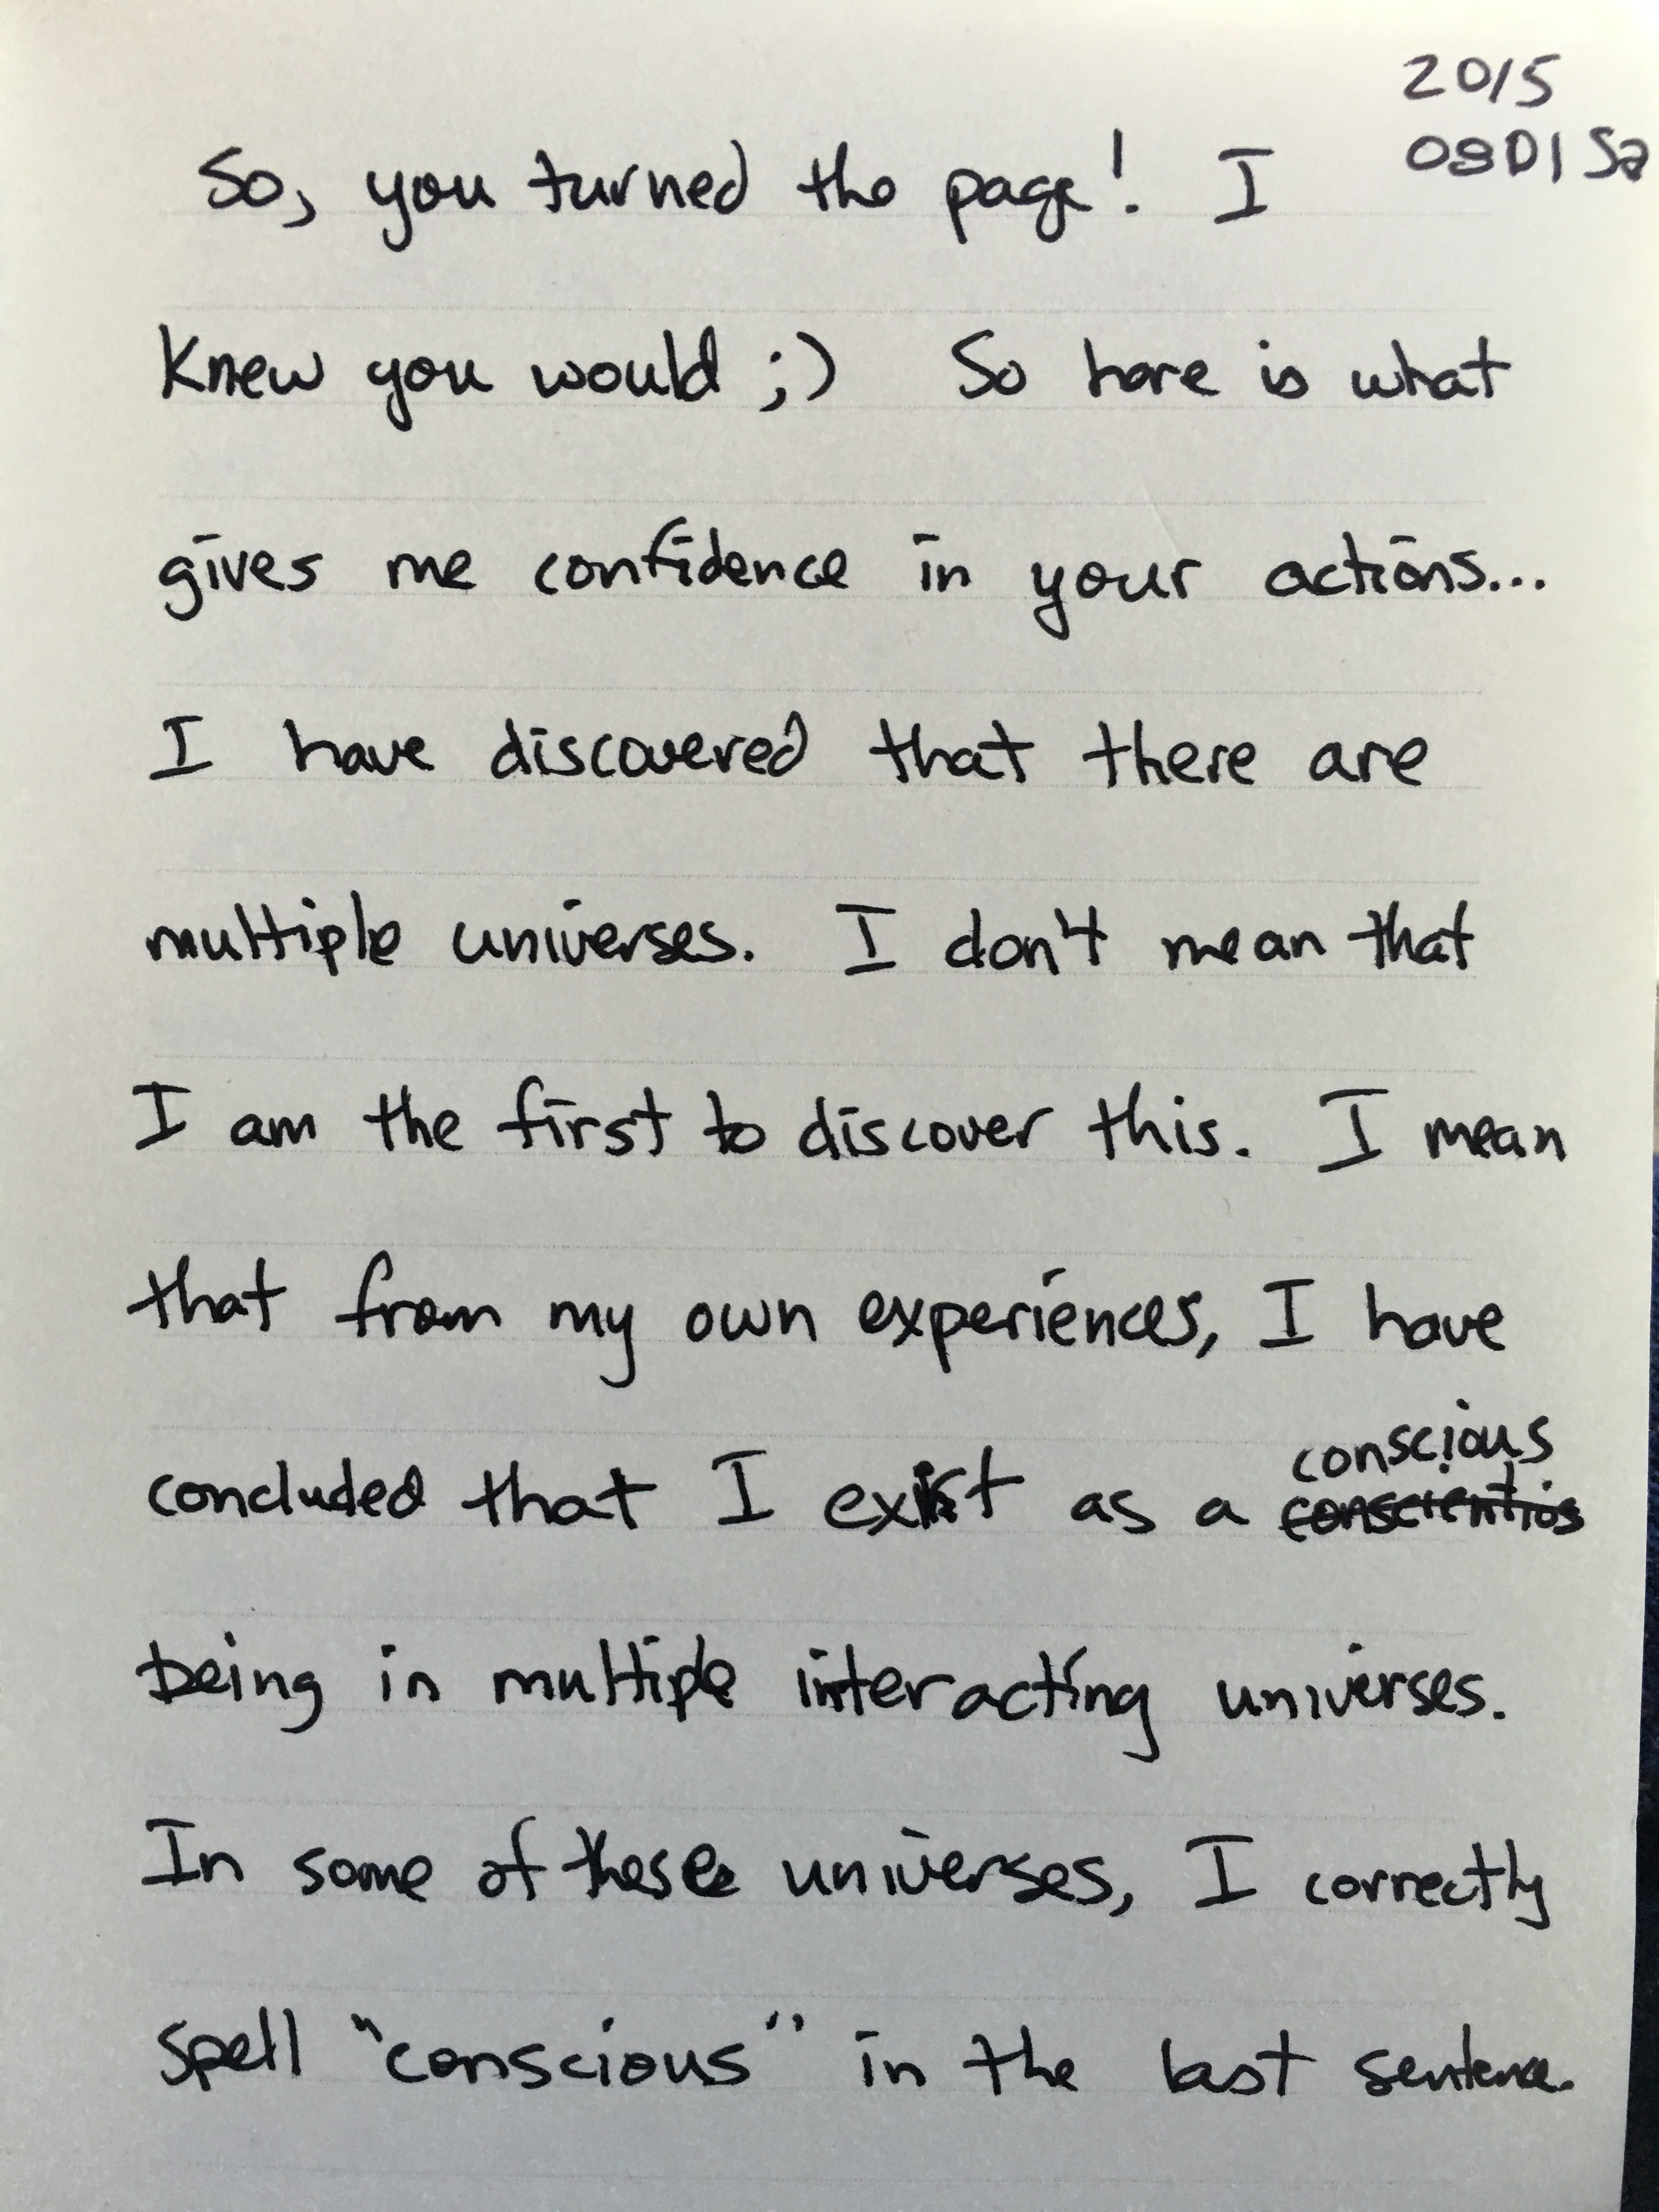 2015
08D1 Sa
So, you turned the page! I
knew you would ;) So here is what
gives me confidence in your actions...
I have discovered that there are
multiple universes. I don't mean that
I am the first to discover this. I mean
that from my own experiences, I have
conscious
concluded that I exist as a conscientios
being in multiple interacting universes.
In some of these universes, I correctly
spell "conscious" in the last sentence.